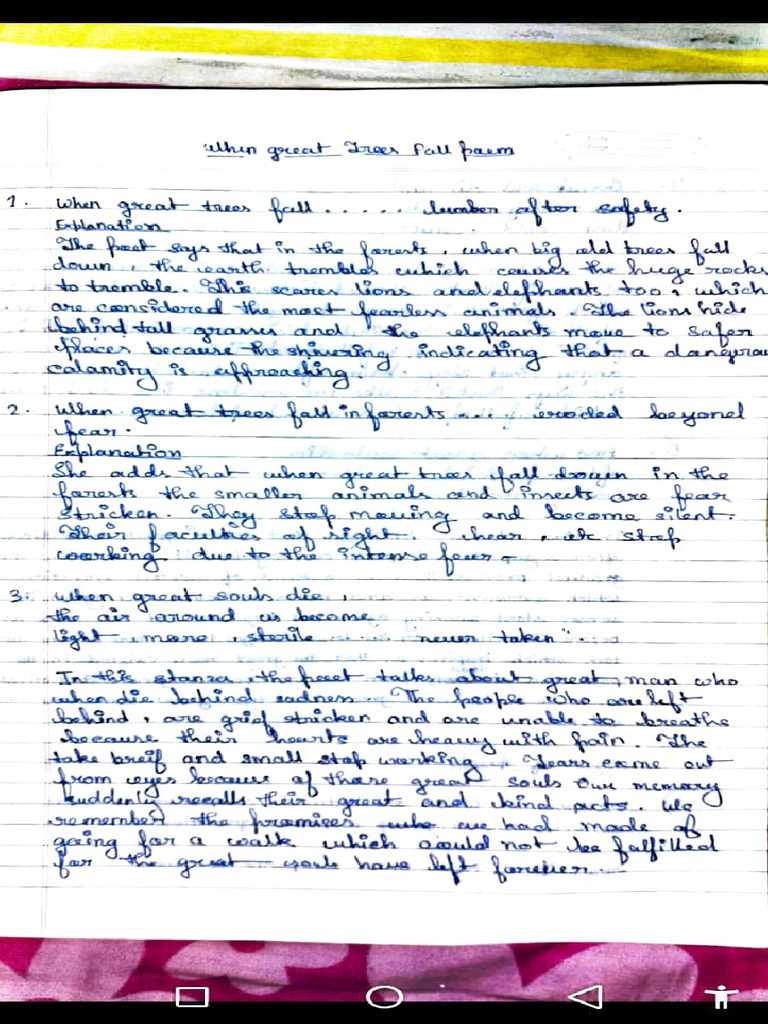 When great Trees Fall Poem
1. When great trees fall ..... lumber after safety.
Explanation
The poet says that in the forests, when big old trees fall
down, the earth trembles which causes the huge rocks
to tremble. This scares lions and elephants too, which
are considered the most fearless animals. The lions hide
behind tall grasses and the elephants move to safer
places because the shivering indicating that a dangerou
calamity is approaching.
2. When great trees fall in forests .... eroded beyond
fear.
Explanation
She adds that when great trees fall down in the
forests the smaller animals and insects are fear
stricken. They stop moving and become silent.
Their faculties of sight, hear, etc stop
working due to the intense fear.
3. When great souls die,
the air around us become
light, mare, sterile ..... never taken".
In this stanza, the poet talks about great man who
when die behind sadness. The people who are left
behind, are grief stricken and are unable to breathe
because their hearts are heavy with pain. The
take breif and small stop working. Tears came out
from eyes because of those great souls Our memory
suddenly recalls their great and kind acts. We
remember the promises who we had made of
going for a walk which would not be falfilled
for the great souls have left forever.